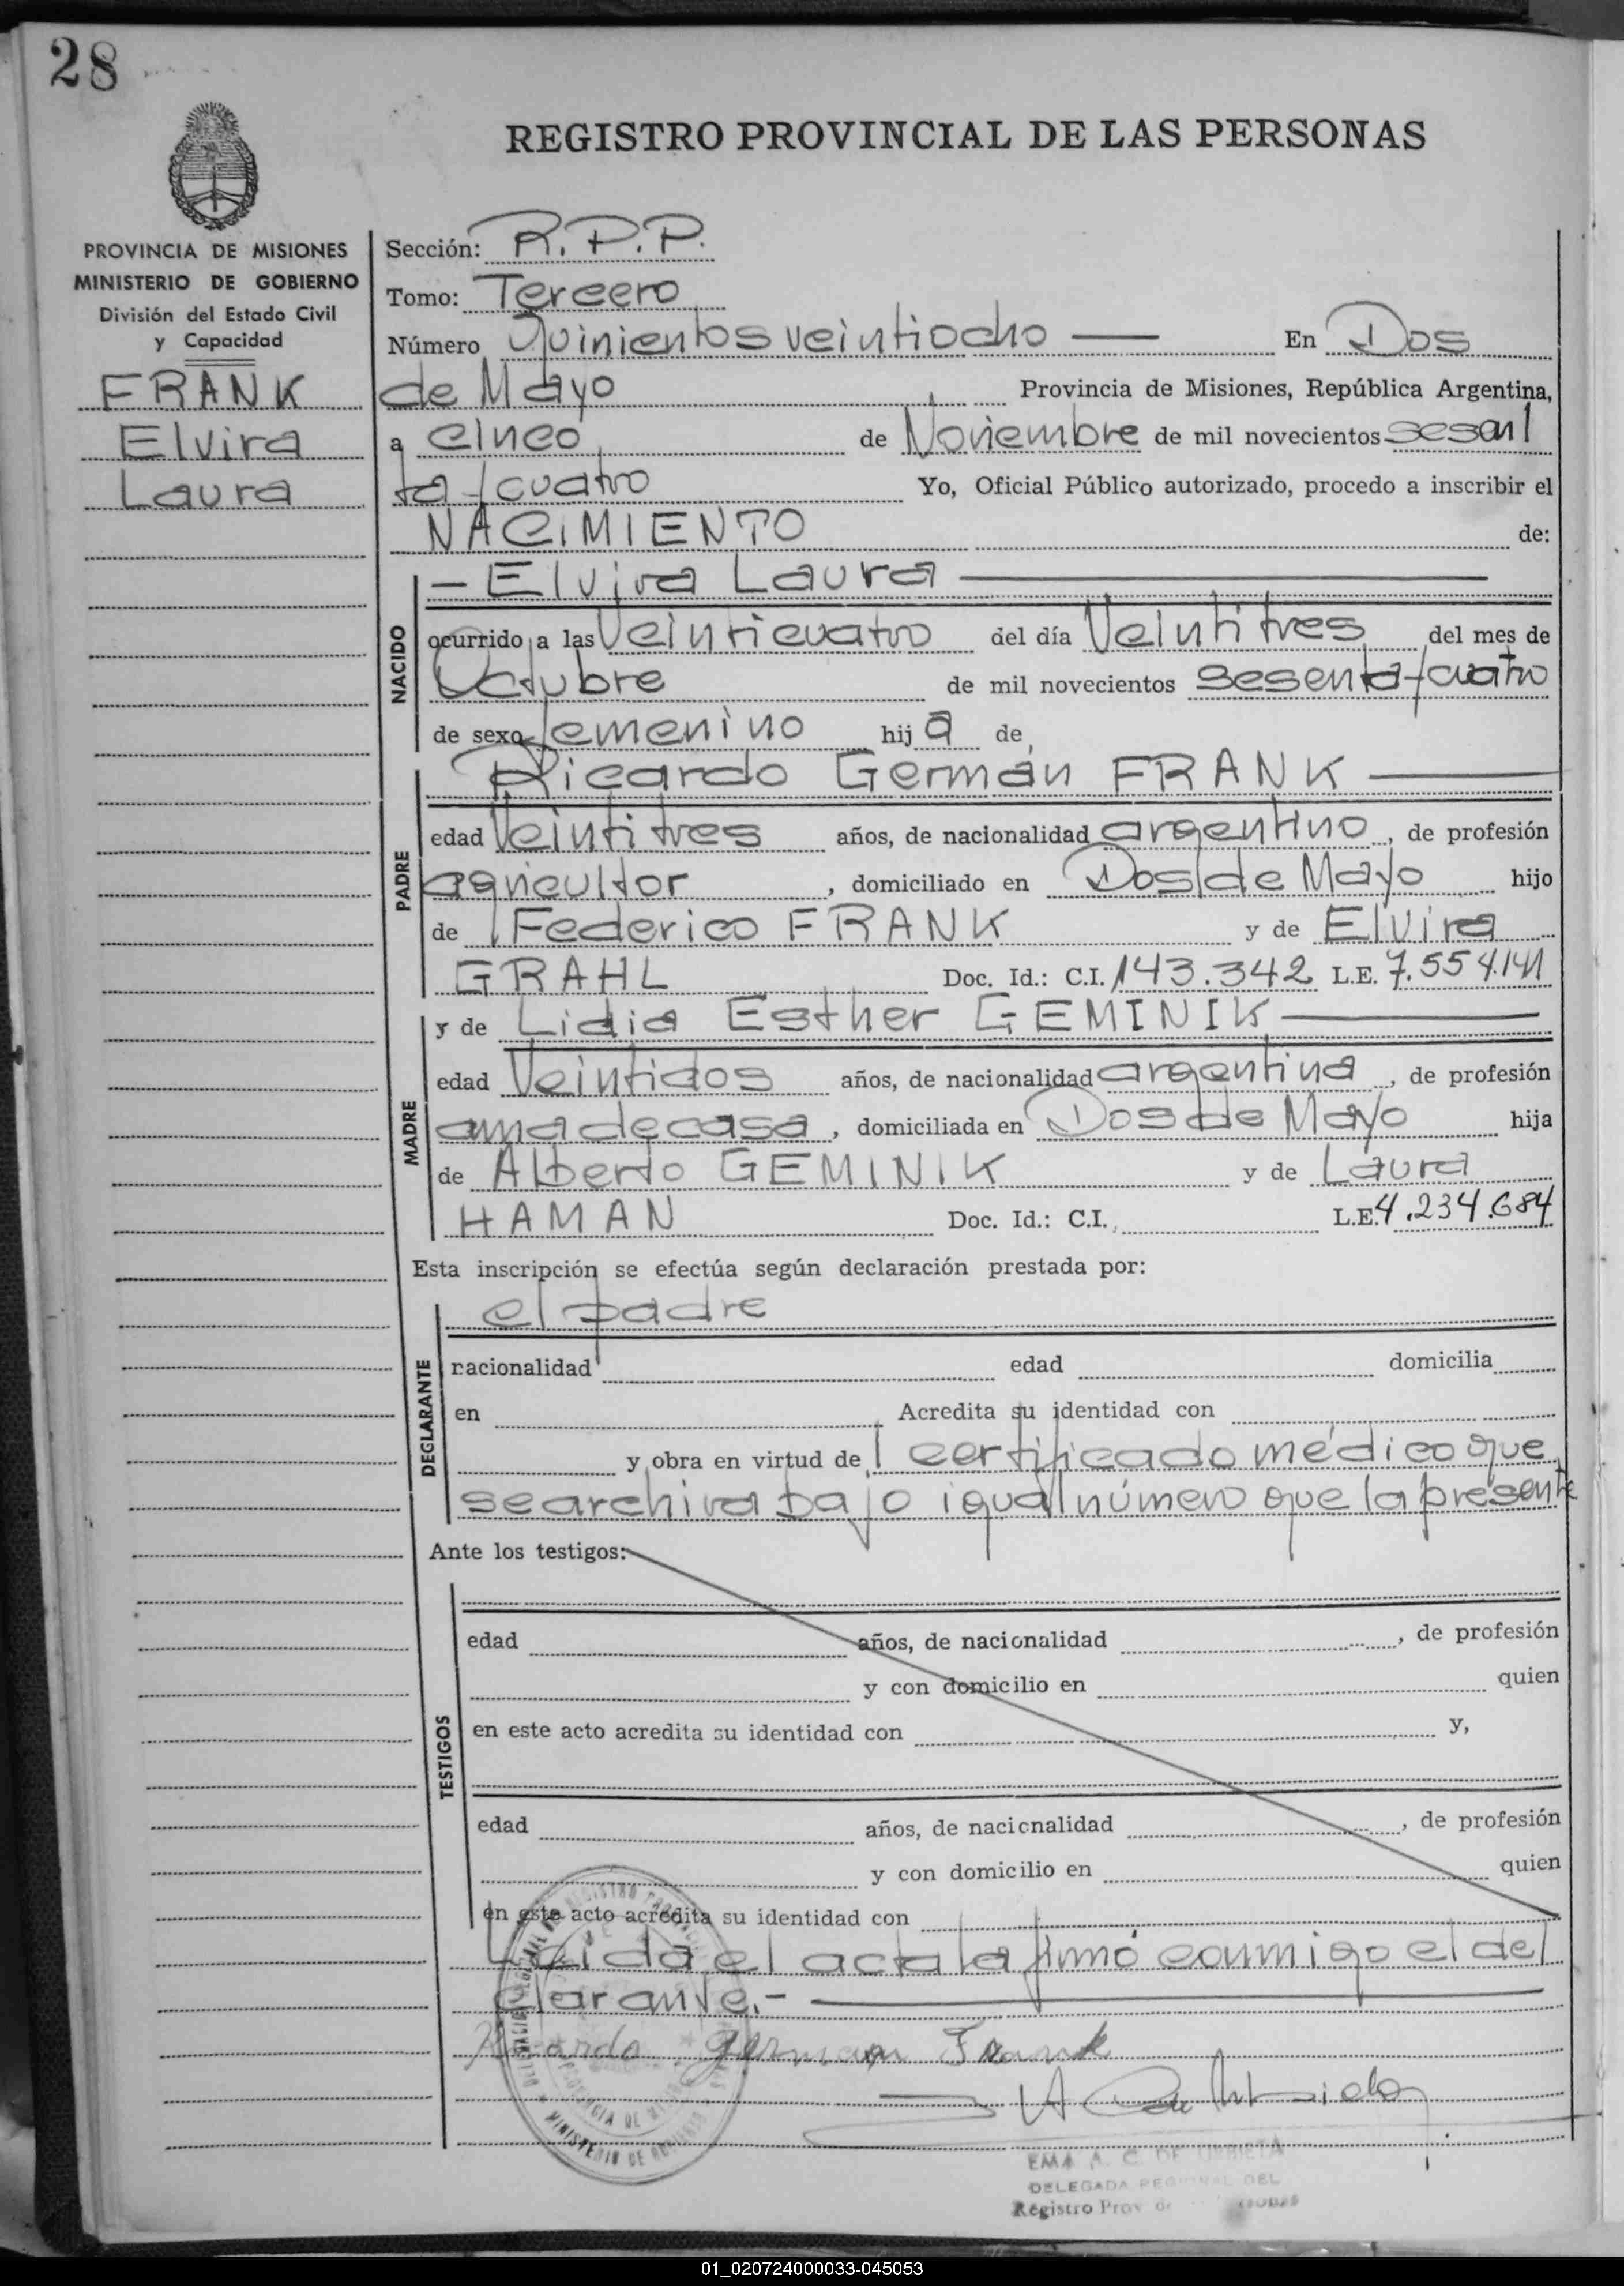 28
REGISTRO PROVINCIAL DE LAS PERSONAS
PROVINCIA DE MISIONES
MINISTERIO DE GOBIERNO
División del Estado Civil
y Capacidad
FRANK
Elvira
Laura
Sección: R.P.P.
Tomo: Tercero
Número Quinientos veintiocho — En Dos
de Mayo Provincia de Misiones, República Argentina,
a cinco de Noviembre de mil novecientos sesen
ta y cuatro Yo, Oficial Público autorizado, procedo a inscribir el
NACIMIENTO de:
NACIDO
– Elvira Laura —
ocurrido a las Veinticuatro del día Veintitres del mes de
Octubre de mil novecientos sesenta y cuatro
de sexo femenino hij a de
PADRE
Ricardo Germán FRANK —
edad Veintitres años, de nacionalidad argentino, de profesión
agricultor, domiciliado en Dos de Mayo hijo
de Federico FRANK y de Elvira
GRAHL Doc. Id.: C.I. 143.342 L.E. 7.554.141
MADRE
y de Lidia Esther GEMINIK —
edad Veintidos años, de nacionalidad argentina, de profesión
ama de casa, domiciliada en Dos de Mayo hija
de Alberto GEMINIK y de Laura
HAMAN Doc. Id.: C.I. L.E. 4.234.684
Esta inscripción se efectúa según declaración prestada por:
DECLARANTE
el padre
nacionalidad edad domicilia
en Acredita su identidad con
y obra en virtud de certificado médico que
se archiva bajo igual número que la presente
Ante los testigos:
TESTIGOS
edad años, de nacionalidad , de profesión
y con domicilio en quien
en este acto acredita su identidad con y,
edad años, de nacionalidad , de profesión
y con domicilio en quien
en este acto acredita su identidad con
Leida el acta la firmó conmigo el de
clarante.- —
Ricardo German Frank
EMA A. C. DE URBIETA
DELEGADA REGIONAL DEL
Registro Prov. de
MINISTERIO DE GOBIERNO
01_020724000033-045053